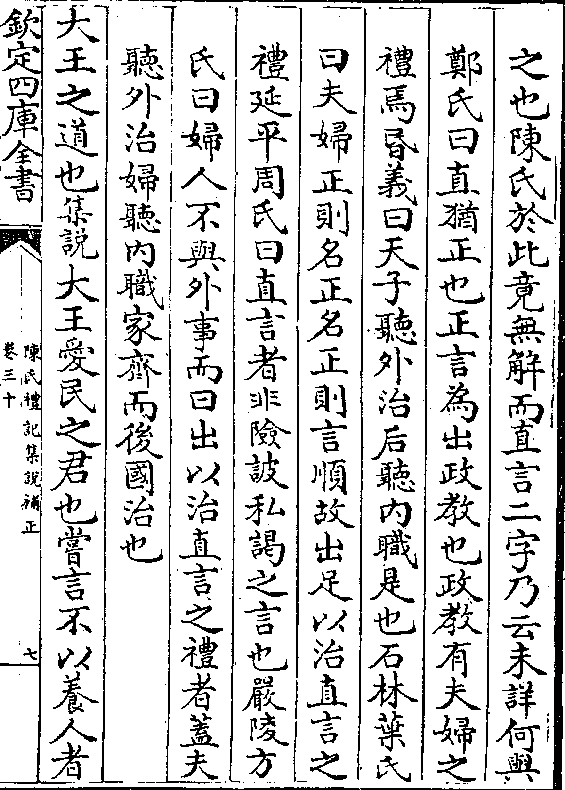 之也陳氏於此竟無解而直言二字乃云未詳何與
鄭氏曰直猶正也正言為出政教也政教有夫婦之
禮焉昏義曰天子聽外治后聽内職是也石林葉氏
曰夫婦正則名正名正則言順故出足以治直言之
禮延平周氏曰直言者非險詖私謁之言也嚴陵方
氏曰婦人不與外事而曰出以治直言之禮者蓋夫
聽外治婦聽内職家齊而後國治也
大王之道也集説大王愛民之君也嘗言不以養人者
欽定四庫全書
陳氏禮記集說補正
卷三十
七